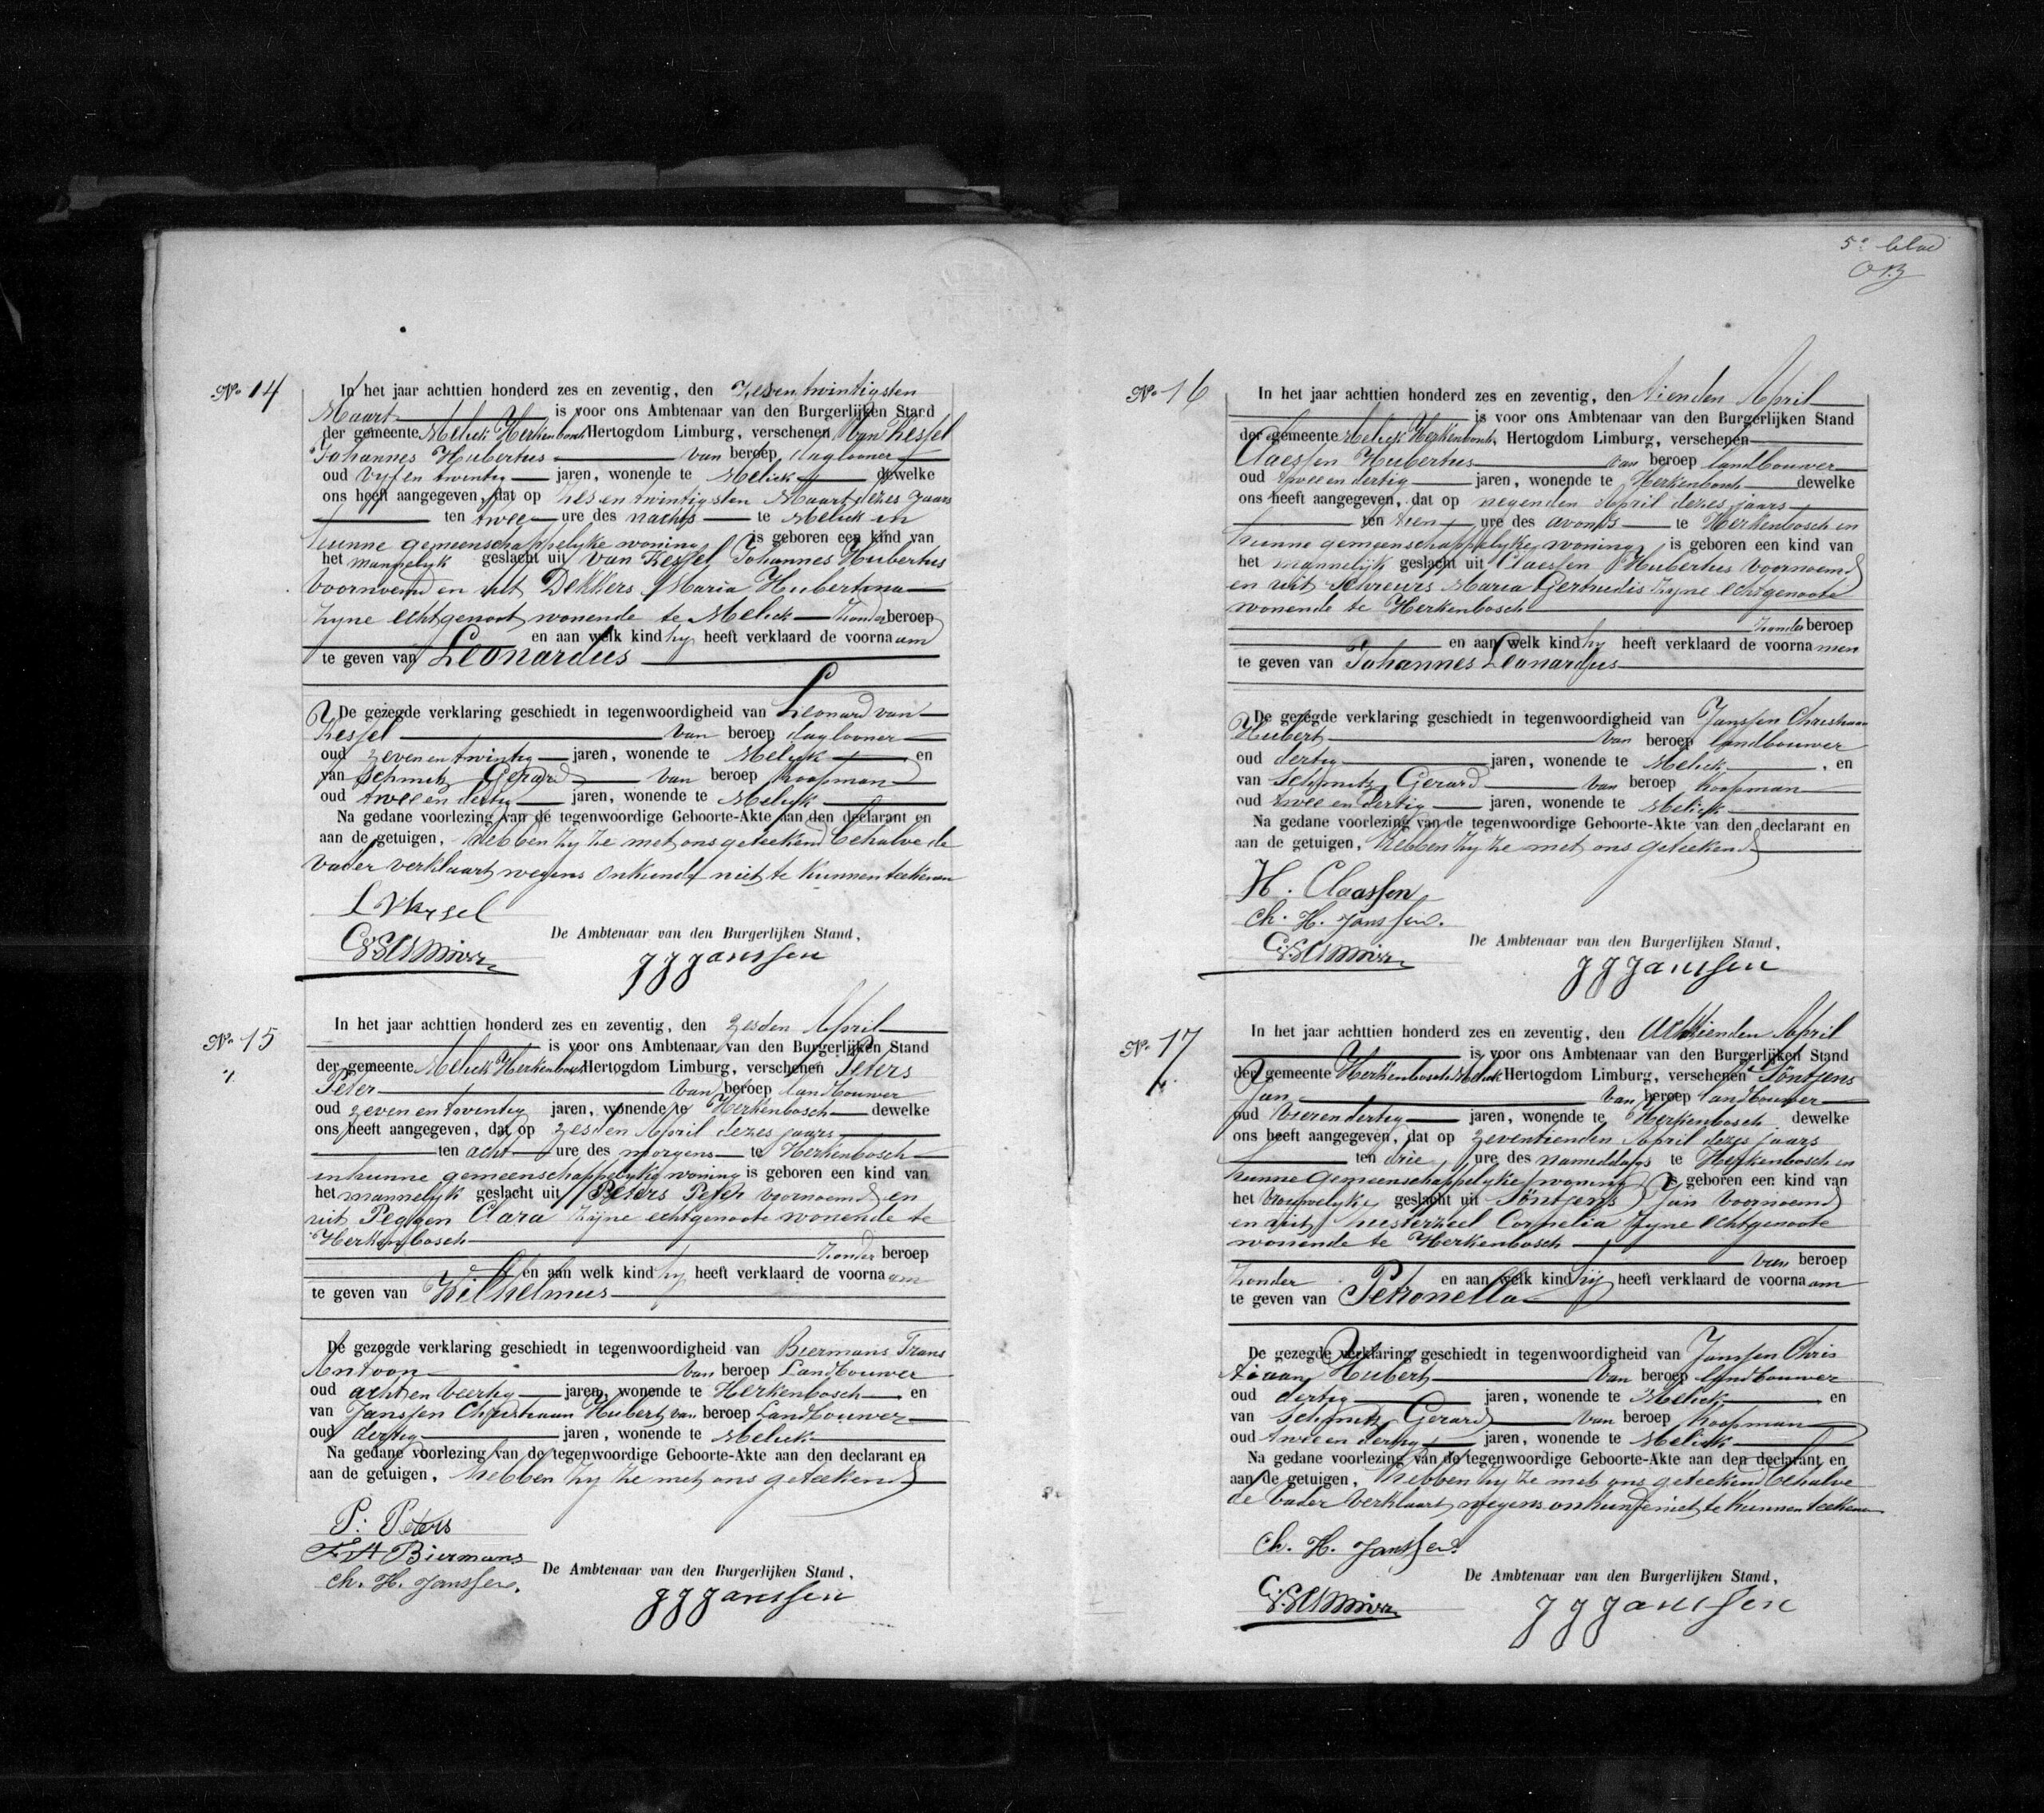 No 14
In het jaar achttien honderd zes en zeventig, den zesentwintigsten
Maart is voor ons Ambtenaar van den Burgerlijken Stand
der gemeente Melick Herkenbosch Hertogdom Limburg, verschenen Van Kessel
Johannes Hubertus van beroep daglooner
oud vyfentwintig jaren, wonende te Melick dewelke
ons heeft aangegeven, dat op zesentwintigsten Maart dezes jaars
ten twee ure des nachts te Melick in
hunne gemeenschappelyke woning is geboren een kind van
het mannelyk geslacht uit Van Kessel Johannes Hubertus
voornoemd en uit Dekkers Maria Hubertina
zyne echtgenoot wonende te Melick zonder beroep
en aan welk kind hy heeft verklaard de voornaam
te geven van Leonardus
De gezegde verklaring geschiedt in tegenwoordigheid van Leonard van
Kessel van beroep daglooner
oud zevenentwintig jaren, wonende te Melick en
van Schmitz Gerard van beroep koopman
oud tweeendertig jaren, wonende te Melick
Na gedane voorlezing van de tegenwoordige Geboorte-Akte aan den declarant en
aan de getuigen, hebben zy ze met ons geteekend behalve de
vader verklaart wegens onkunde niet te kunnen teekenen
De Ambtenaar van den Burgerlijken Stand,
JJJanssen
No 15
In het jaar achttien honderd zes en zeventig, den zesden April
is voor ons Ambtenaar van den Burgerlijken Stand
der gemeente Melick Herkenbosch Hertogdom Limburg, verschenen Peters
Peter van beroep landbouwer
oud zevenentwintig jaren, wonende te Herkenbosch dewelke
ons heeft aangegeven, dat op zesden April dezes jaars
ten acht ure des morgens te Herkenbosch
in hunne gemeenschappelyke woning is geboren een kind van
het mannelyk geslacht uit Peters Peter voornoemd en
uit Peggen Clara zyne echtgenoote wonende te
Herkenbosch
zonder beroep
en aan welk kind hy heeft verklaard de voornaam
te geven van Wilhelmus
De gezegde verklaring geschiedt in tegenwoordigheid van Biermans Frans
Antoon van beroep Landbouwer
oud achtenveertig jaren, wonende te Herkenbosch en
van Janssen Christiaan Hubert van beroep Landbouwer
oud dertig jaren, wonende te Melick
Na gedane voorlezing van de tegenwoordige Geboorte-Akte aan den declarant en
aan de getuigen, hebben zy ze met ons geteekend
P. Peters
F A Biermans
Ch. H. Janssen.
De Ambtenaar van den Burgerlijken Stand,
JJJanssen
5e blad
No 16
In het jaar achttien honderd zes en zeventig, den tienden April
is voor ons Ambtenaar van den Burgerlijken Stand
der gemeente Melick Herkenbosch, Hertogdom Limburg, verschenen
Claessen Hubertus van beroep landbouwer
oud tweeendertig jaren, wonende te Herkenbosch dewelke
ons heeft aangegeven, dat op negenden April dezes jaars
ten tien ure des avonds te Herkenbosch in
hunne gemeenschappelyke woning is geboren een kind van
het mannelijk geslacht uit Claessen Hubertus voornoemd
en uit Schreurs Maria Gertrudis zyne echtgenoote
wonende te Herkenbosch
zonder beroep
en aan welk kind hy heeft verklaard de voornamen
te geven van Johannes Leonardus
De gezegde verklaring geschiedt in tegenwoordigheid van Janssen Christiaan
Hubert van beroep landbouwer
oud dertig jaren, wonende te Melick, en
van Schmitz Gerard van beroep koopman
oud tweeendertig jaren, wonende te Melick
Na gedane voorlezing van de tegenwoordige Geboorte-Akte van den declarant en
aan de getuigen, hebben zy ze met ons geteekend
H. Claassen
Ch. H. Janssen.
De Ambtenaar van den Burgerlijken Stand,
JJJanssen
No 17
In het jaar achttien honderd zes en zeventig, den Achttienden April
is voor ons Ambtenaar van den Burgerlijken Stand
der gemeente Herkenbosch Melick Hertogdom Limburg, verschenen Töntjens
Jan van beroep landbouwer
oud vierendertig jaren, wonende te Herkenbosch dewelke
ons heeft aangegeven, dat op zeventienden April dezes jaars
ten drie ure des namiddags te Herkenbosch in
hunne gemeenschappelyke woning is geboren een kind van
het vrouwelyke geslacht uit Töntjens Jan voornoemd
en uit Cornelia zyne echtgenoote
wonende te Herkenbosch
van beroep
zonder en aan welk kind hij heeft verklaard de voornaam
te geven van Petronella
De gezegde verklaring geschiedt in tegenwoordigheid van Janssen Chris
tiaan Hubert van beroep landbouwer
oud dertig jaren, wonende te Melick en
van Schmitz Gerard van beroep koopman
oud tweeendertig jaren, wonende te Melick
Na gedane voorlezing van de tegenwoordige Geboorte-Akte aan den declarant en
aan de getuigen, hebben zy ze met ons geteekend behalve
de vader verklaart wegens onkunde niet te kunnen teekenen
Ch. H. Janssen.
De Ambtenaar van den Burgerlijken Stand,
JJJanssen